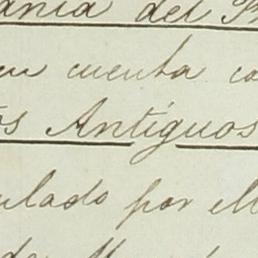 ania del P
en cuenta co
os Antiguos
ulado por ell